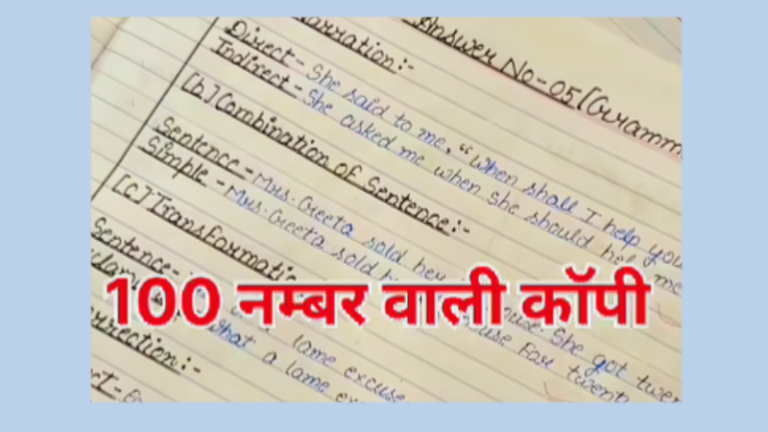 Answer No-05 [Gramm
Narration:-
Direct- She said to me, "When shall I help you
Indirect- She asked me when she should help me
[b] Combination of Sentence:-
Sentence- Mrs. Geeta sold her house. She got twen
Simple- Mrs. Geeta sold house for twent
[c] Transformatio
Sentence- a lame excuse
what a lame ex
rrection:-
100 नम्बर वाली कॉपी